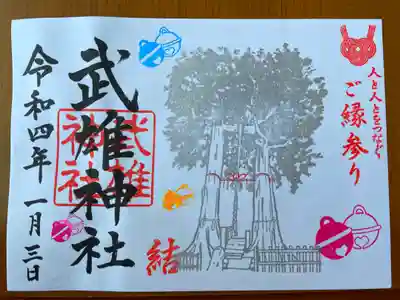 人と人とをつなぐ
ご縁参り
結
武雄神社
武雄
神社
令和四年 一月三日